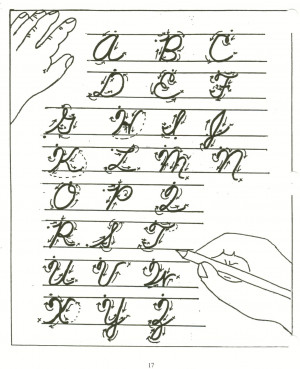 A B C
D E F
G H I J
K L M N
O P Q
R S T
U V W
X Y Z
17